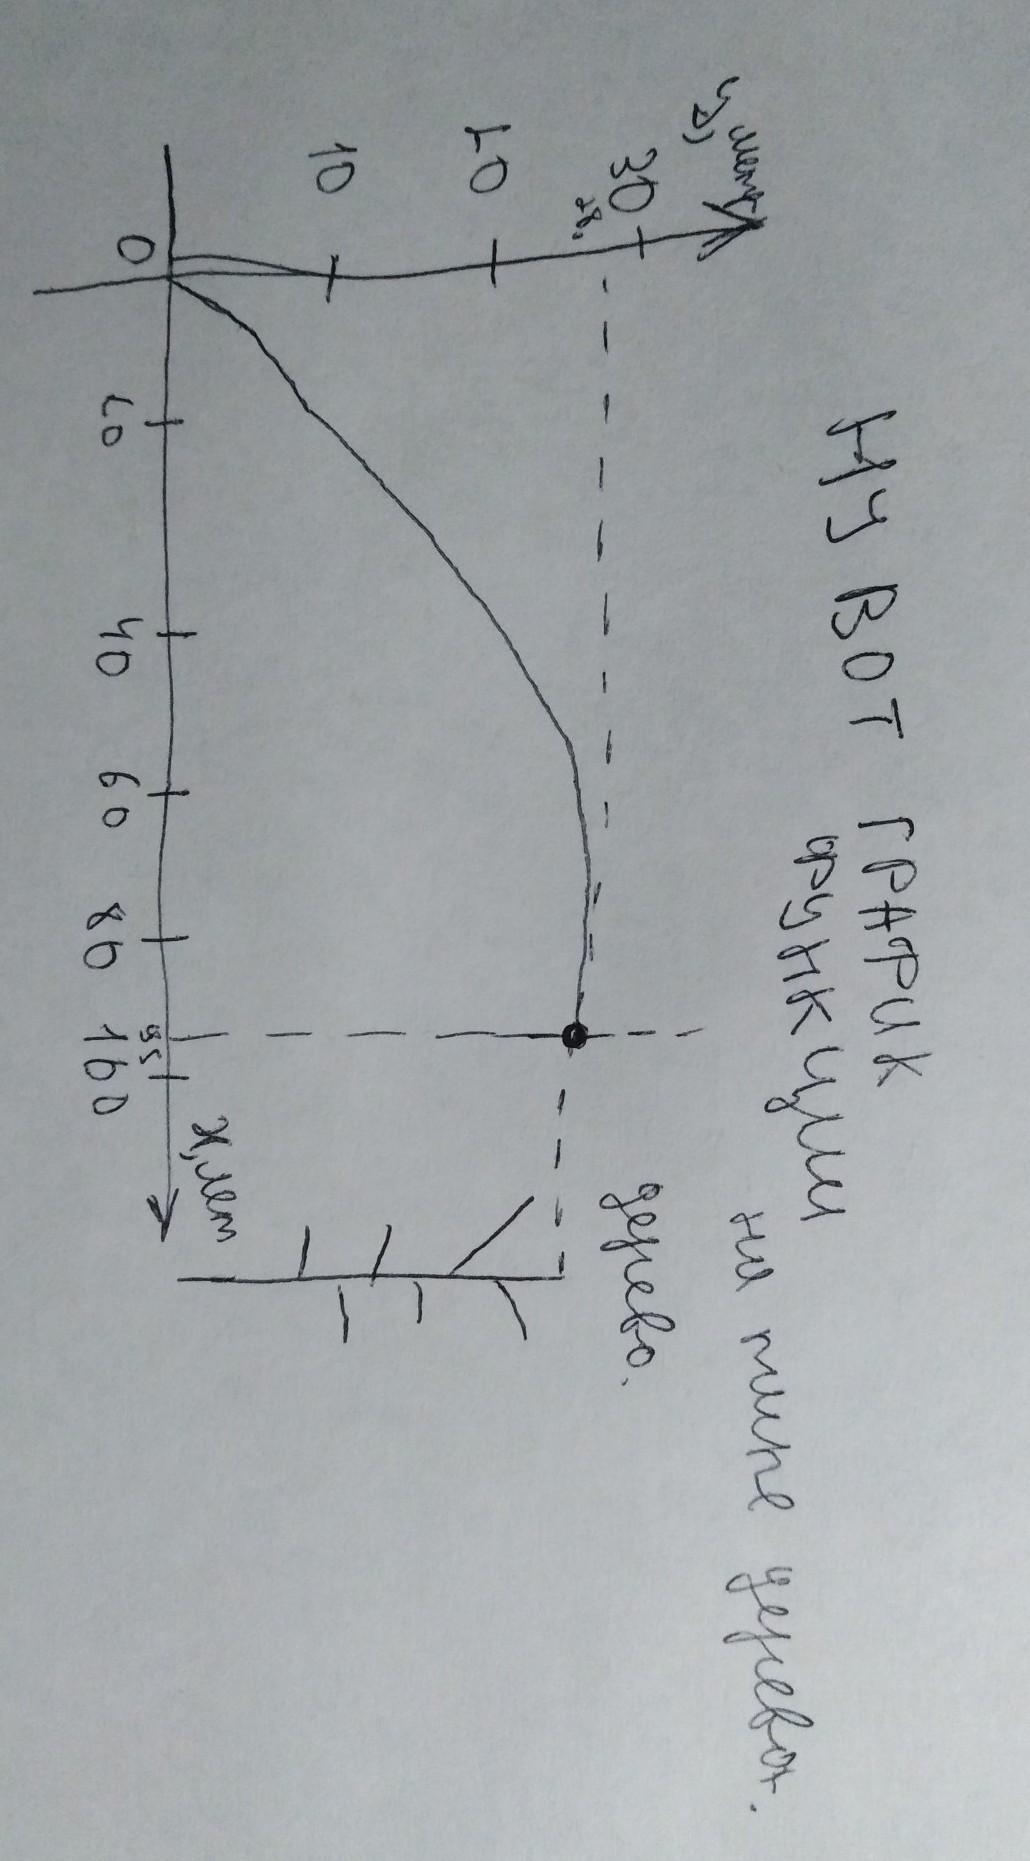 НУ ВОТ ГРАФИК
функции
на типе дерева.
y, метр
30
28.
20
10
0
20
40
60
80
95
100
x, лет
дерево.